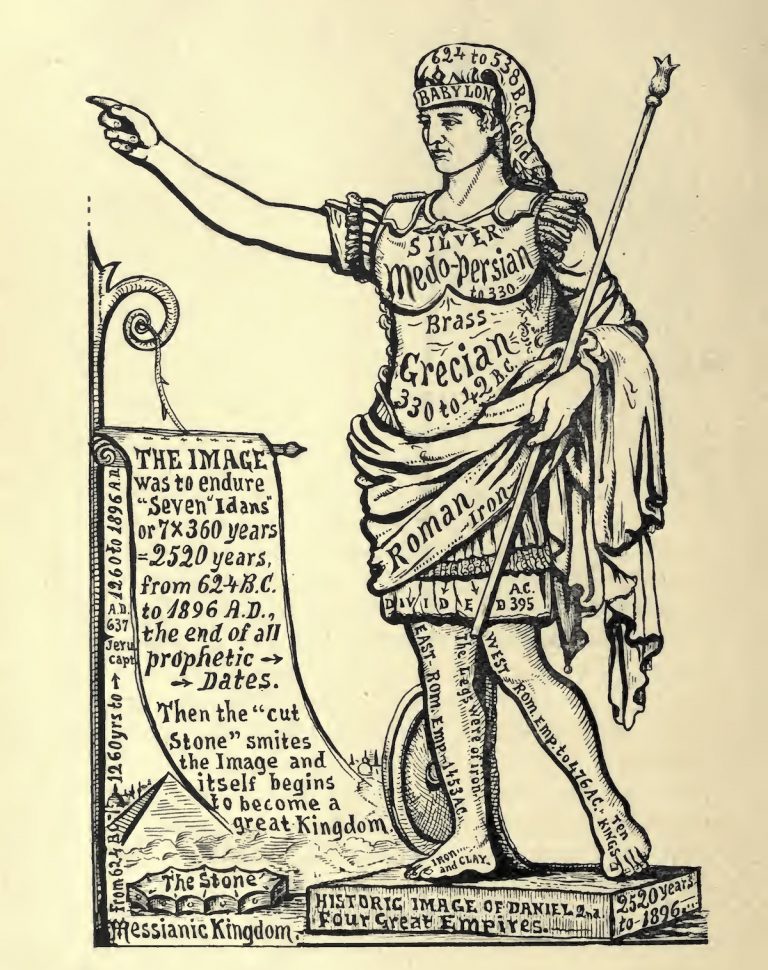 624 to 538 B.C. Gold
BABYLON
SILVER
Medo-Persian
to 330
Brass
Grecian
330 to 42 B.C.
Roman Iron
DIVIDED A.C. 395
EAST-ROM. EMP.-1453 A.C.
The Legs were of iron.
WEST-ROM. EMP. to 476 A.C.
TEN KINGS
IRON
and CLAY.
THE IMAGE
was to endure
"Seven" Idans"
or 7X360 years
=2520 years,
from 624 B.C.
to 1896 A.D.,
the end of all
prophetic →
→ Dates.
Then the "cut
Stone" smites
the Image and
itself begins
to become a
great Kingdom.
From 624 B.C. 1260 yrs to → A.D. 637 Jeru. capt. 1260 to 1896 A.D.
The Stone
Messianic Kingdom.
HISTORIC IMAGE OF DANIEL 2nd
Four Great Empires.
2520 years
to-1896...